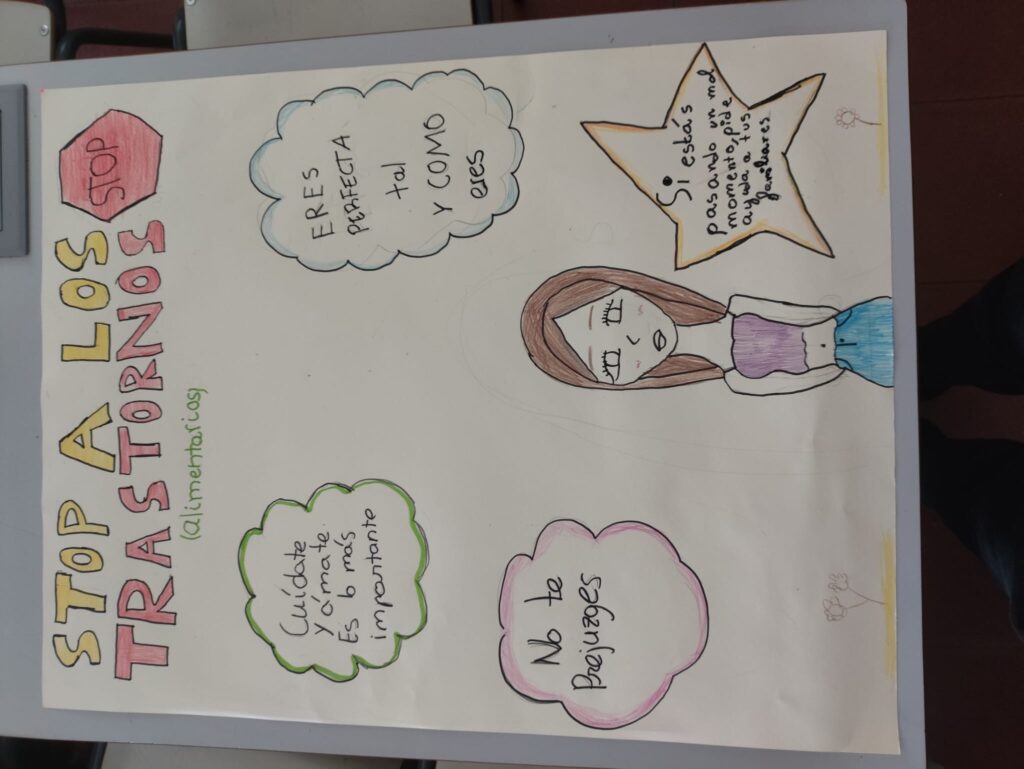 STOP A LOS
TRASTORNOS
STOP
(alimentarios)
Cuídate
y ámate.
Es lo más
importante
ERES
PERFECTA
tal
y COMO
eres
No te
Prejuzges
Si estás
pasando un mal
momento, pide
ayuda a tus
familiares